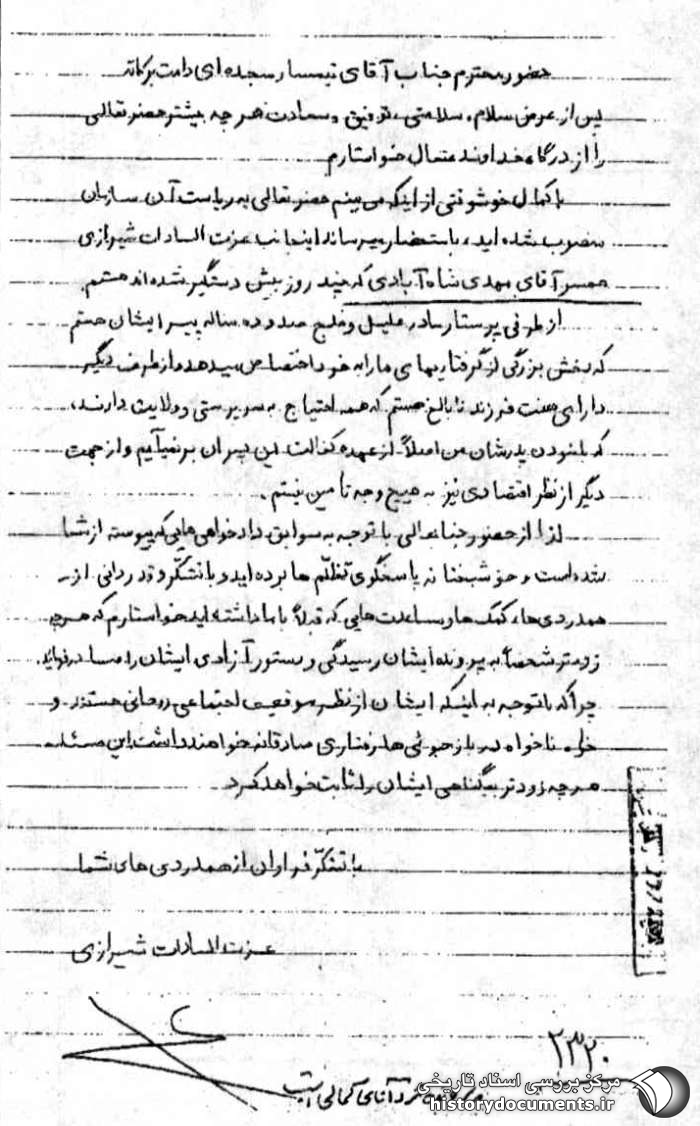 حضور محترم جناب آقای تیمسار سجده‌ای دامت برکاته
پس از عرض سلام، سلامتی، توفیق و سعادت هر چه بیشتر حضرتعالی
را از درگاه خداوند متعال خواستارم
با کمال خوشوقتی از اینکه می‌بینم حضرتعالی به ریاست آن سازمان
منصوب شده‌اید، باستحضار میرساند اینجانب عزت السادات شیرازی
همسر آقای مهدی شاه‌آبادی که چند روز پیش دستگیر شده‌اند هستم.
از طرفی پرستار مادر علیل و فلج صد و ده ساله پیر ایشان هستم
که بخش بزرگی از گرفتاریهای ما را به خود اختصاص میدهد و از طرف دیگر
دارای هفت فرزند نابالغ هستم که همه احتیاج به سرپرستی و ولایت دارند،
که با نبودن پدرشان من اصلاً از عهده کفالت این پسران برنمیآیم و از جهت
دیگر از نظر اقتصادی نیز به هیچ وجه تأمین نیستم.
لذا از حضور جنابعالی با توجه به سوابق دادخواهی‌هایی که پیوسته از شما
شده است و خوشبختانه پاسخگوی تظلّم‌ها بوده‌اید و با تشکّر و قدردانی از
همدردی‌ها، کمک‌ها و مساعدت‌هایی که قبلاً با ما داشته‌اید خواستارم که هر چه
زودتر شخصاً به پرونده ایشان رسیدگی و دستور آزادی ایشان را صادر فرمائید.
چرا که با توجه به اینکه ایشان از نظر موقعیت اجتماعی روحانی هستند و
خواه ناخواه در بازجوئی‌ها رفتاری صادقانه خواهند داشت این مسئله
هر چه زودتر بیگناهی ایشان را ثابت خواهد کرد.
با تشکّر فراوان از همدردی‌های شما
عزت السادات شیرازی
۲۳۲۰
آقای کمالی است
مرکز بررسی اسناد تاریخی
historydocuments.ir